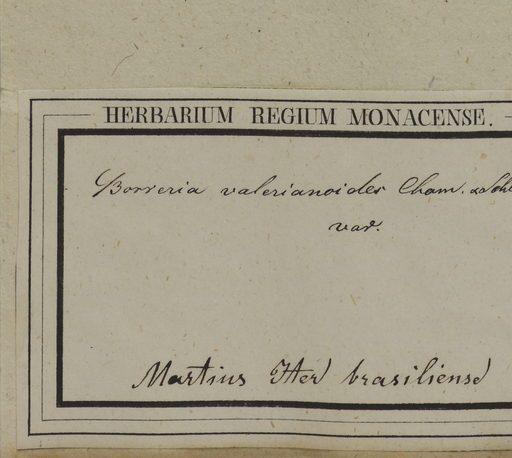 HERBARIUM REGIUM MONACENSE.
Borreria valerianoides Cham. & Schl
var.
Martius Iter brasiliense